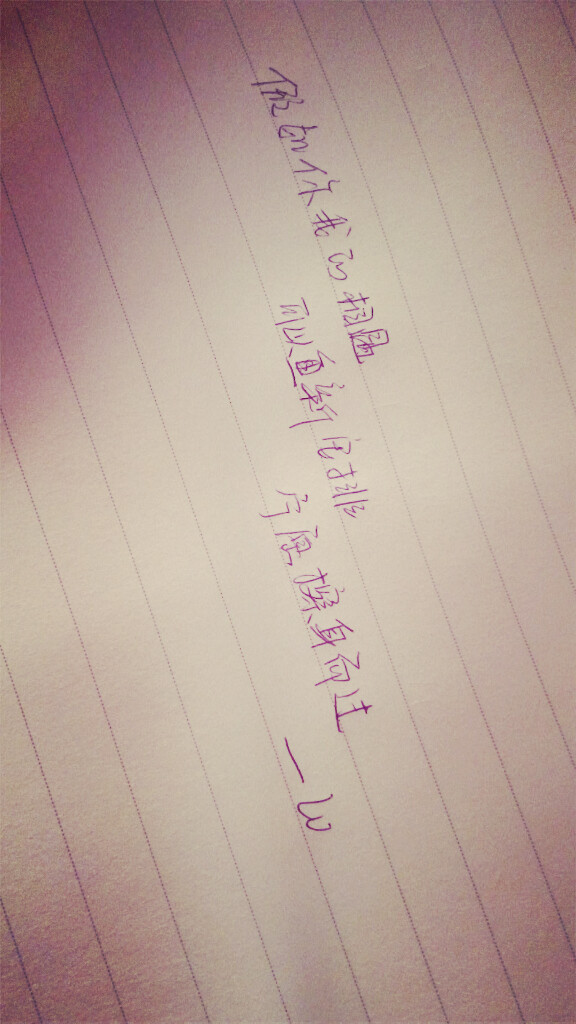 假如你我的相遇
可以重新安排
宁愿擦身而过
—W